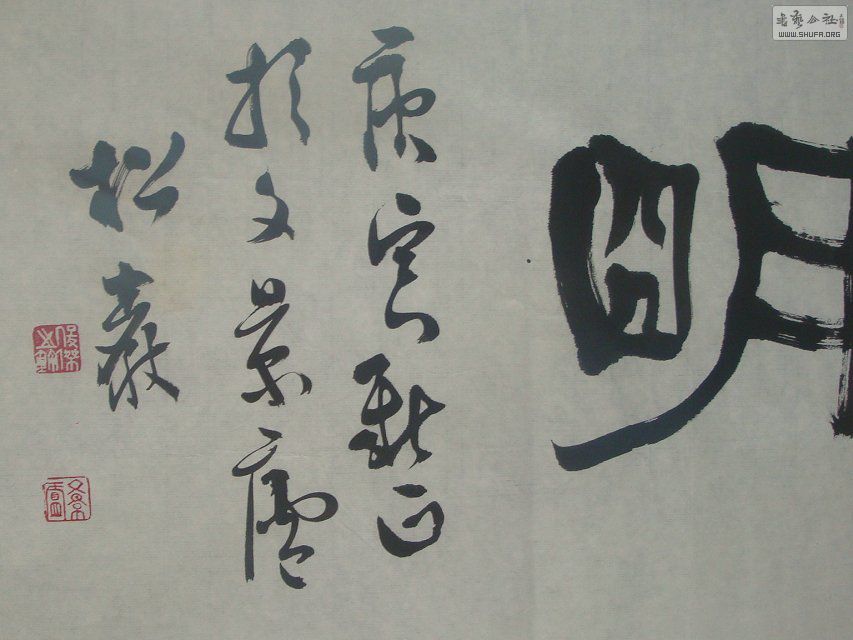 明
庚寅新正
於文景廬
松巖
书艺公社
WWW.SHUFA.ORG